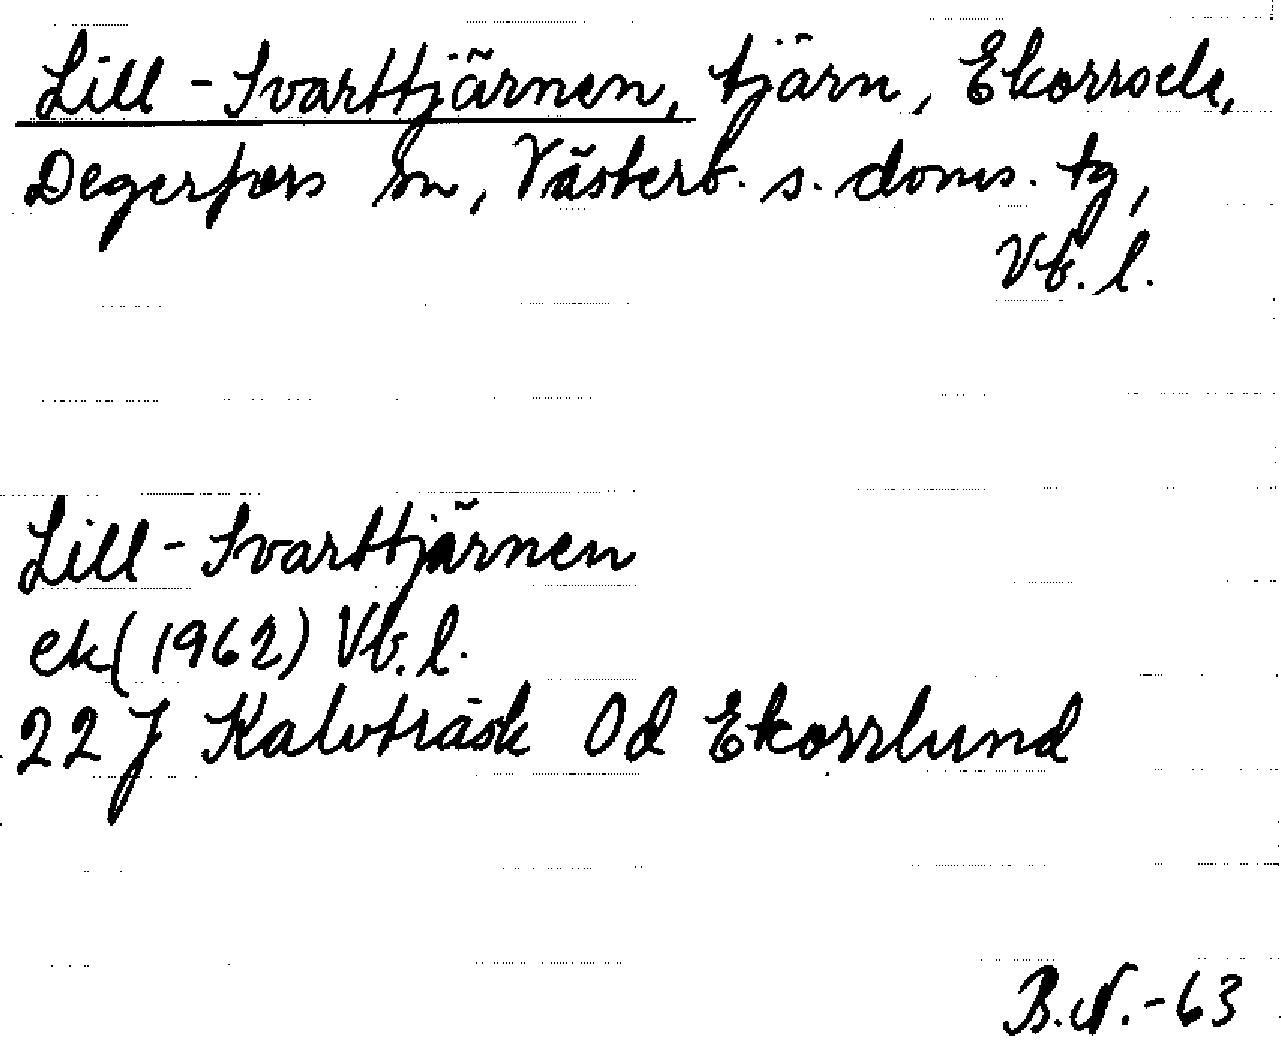 Lill-Svarttjärnen, tjärn, Ekorrsele,
Degerfors sn, Västerb. s. doms. tg,
Vb. l.
Lill-Svarttjärnen
ek (1962) Vb. l.
22 J Kalvträsk 0d Ekorrlund
B.N.-63